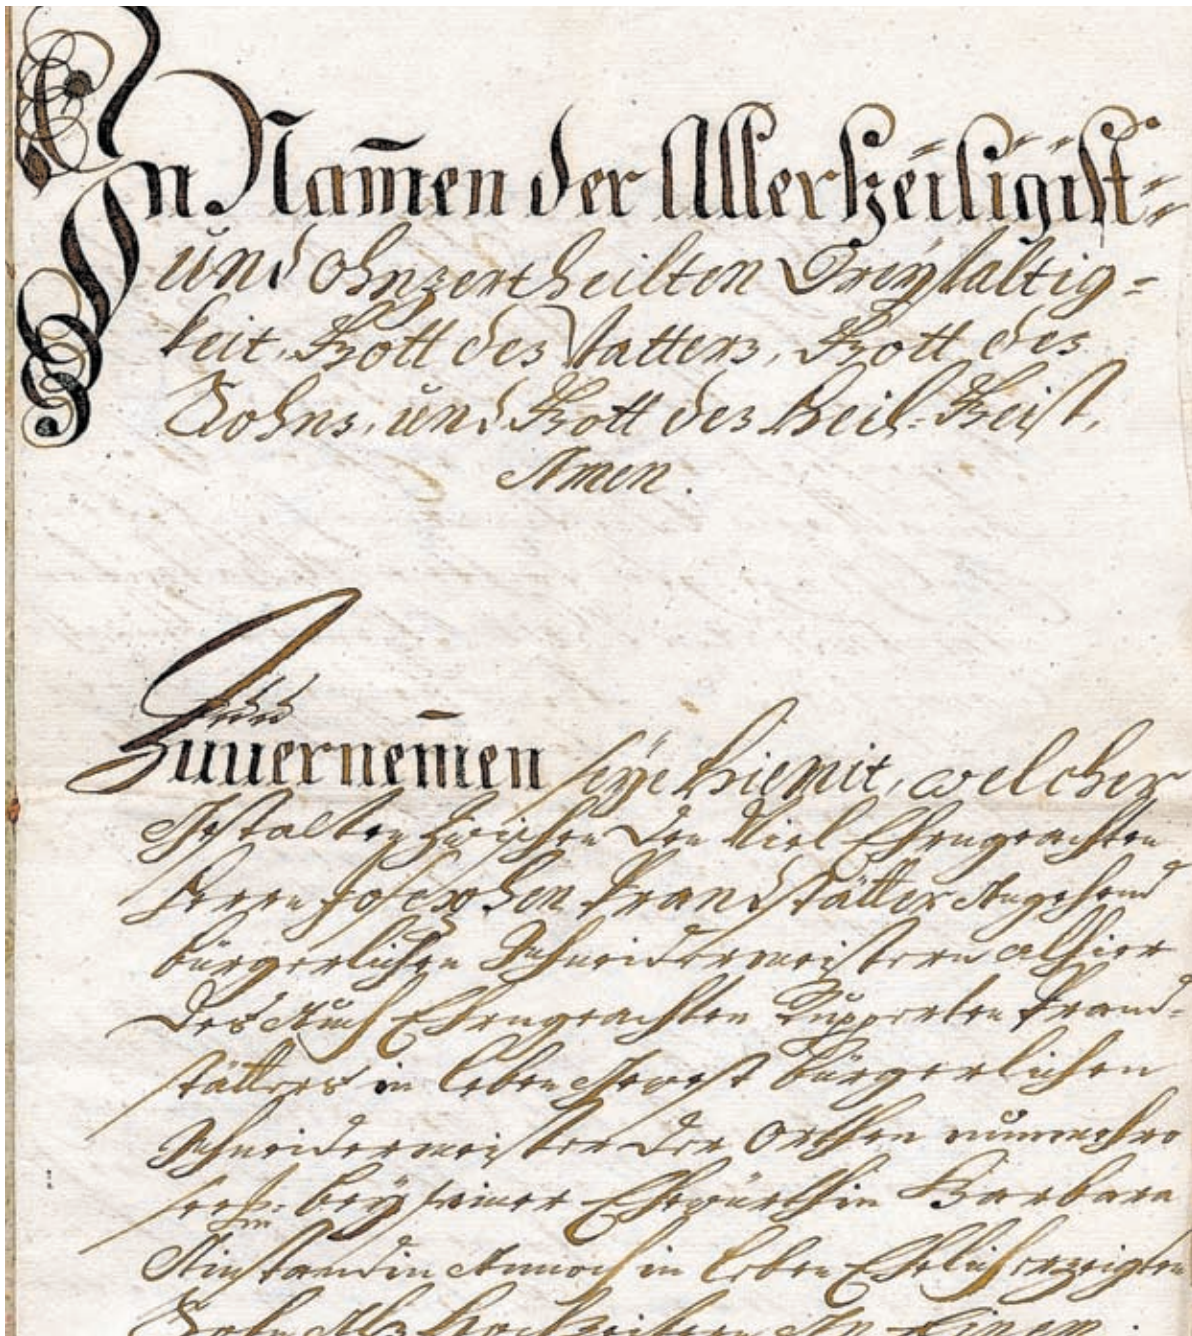 In Namen̄ der Allerheiligist=
und ohnzertheilten Dreyfaltig=
keit, Gott des Vatters, Gott des
Sohns, und Gott des heil: Geist,
Amen.
Zuuernemēn seye hiemit, welcher
Gestalten zwischen den Viel Ehrngeachten
Herrn Josephen Brandstätter Angehend
bürgerlichen Schneidermeistern alhier
des Auch Ehrngeachten Rupperten Brand=
stätters in leben Gewest bürgerlichen
Schneidermeister der Orthen nunmehro
seel: bey seiner Ehewürthin Barbara
in Annoch in leben Ehelich erzeigten
Sohn Als Hochzeitern An Einem